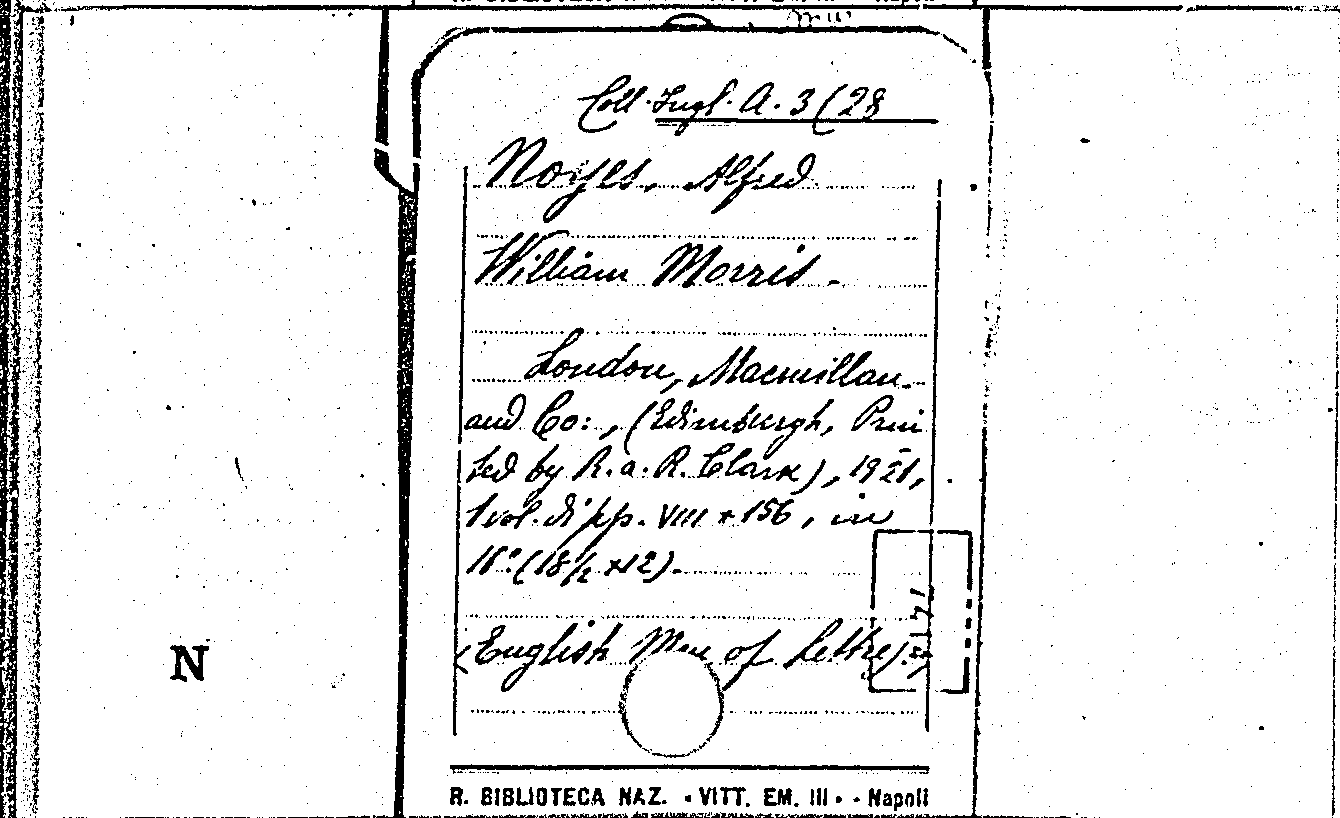 Coll. Ingl. A. 3 (28
Noyes, Alfred.
William Morris.
London, Macmillan
and Co:, (Edimburgh, Prin
ted by R. a. R. Clark), 1921,
1 vol. di pp. VIII + 156, in
16° (18½ x 12).
(English Men of Letters)
N
R. BIBLIOTECA NAZ. • VITT. EM. III • - Napoli